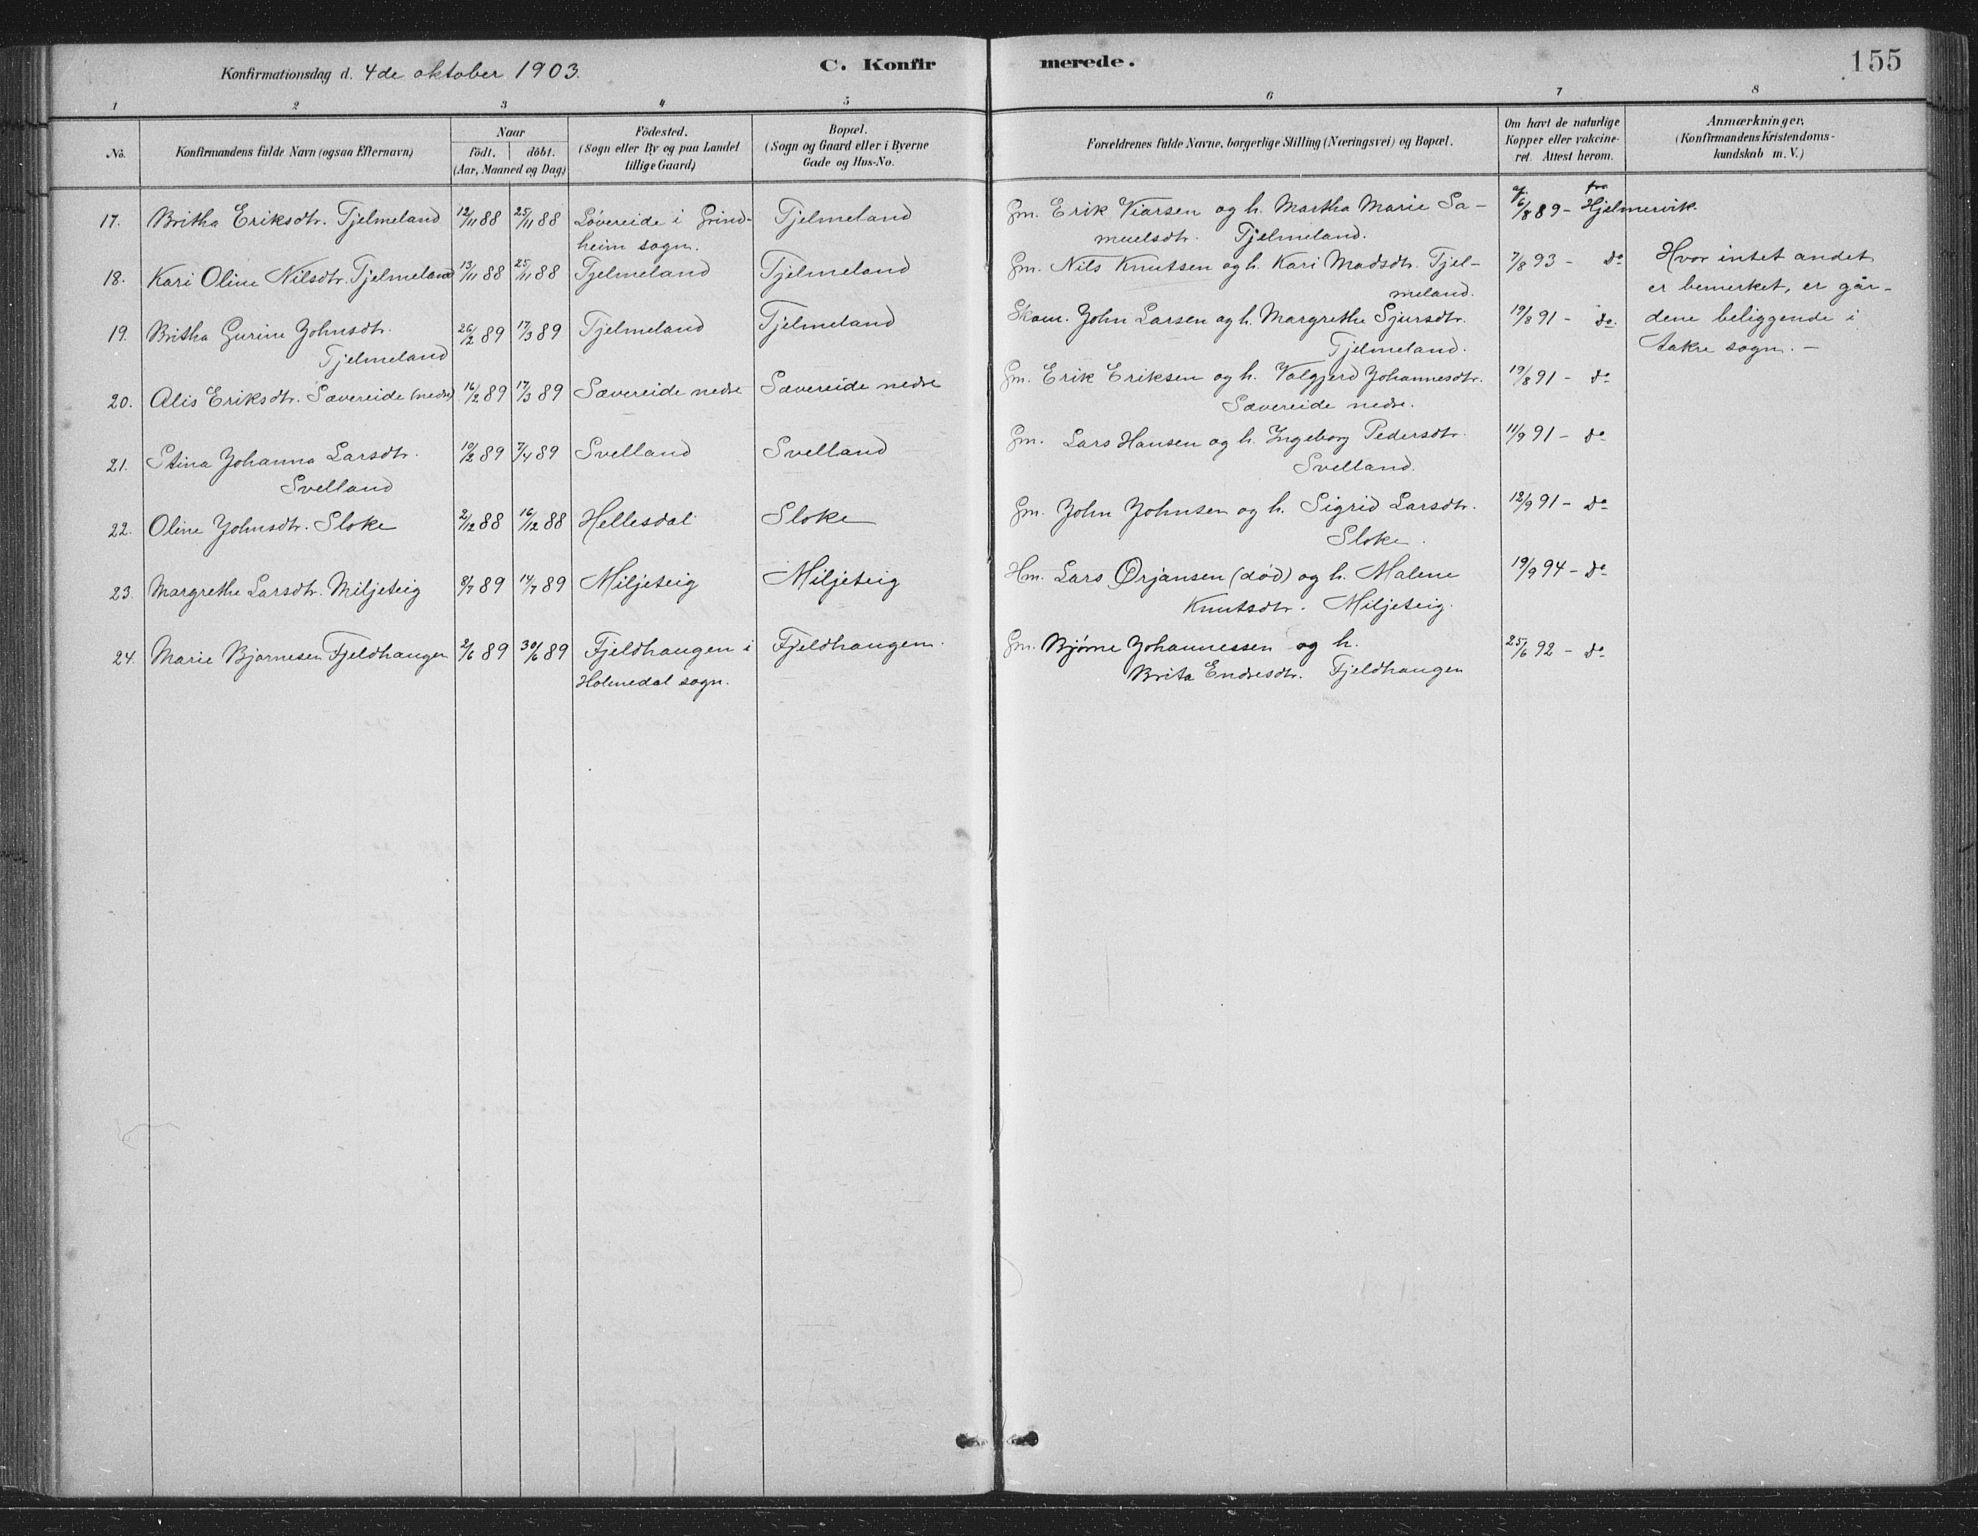 Konfirmationsdag d. 4de oktober 1903. C. Konfirmerede. 155
1 2 3 4 5 6 7 8
No. Konfirmandens fulde Navn (ogsaa Efternavn) Naar födt. döbt. (Aar, Maaned og Dag) Födested. (Sogn eller By og paa Landet tillige Gaard) Bopæl. (Sogn og Gaard eller i Byerne Gade og Hus-No. Forældrenes fulde Navne, borgerlige Stilling (Næringsvei) og Bopæl. Om havt de naturlige Kopper eller vakcineret. Attest herom. Anmærkninger, (Konfirmandens Kristendomskundskab m. V.)
17. Britha Eriksdtr. Tjelmeland 12/11 88 25/11 88 Løvereide i Grind- Tjelmeland Gm. Erik Viarsen og h. Martha Marie Sa- 6/8 89 - fra Hjelmervik
heim sogn. muelsdtr. Tjelmeland.
18. Kari Oline Nilsdtr. Tjelmeland 13/11 88 25/11 88 Tjelmeland Tjelmeland Gm. Nils Knutsen og h. Kari Madsdtr. Tjel- 7/8 93 - do Hvor intet andet
meland. er bemerket, er går-
19. Britha Gurine Johnsdtr. 26/2 89 17/3 89 Tjelmeland Tjelmeland Skom. John Larsen og h. Margrethe Sjursdtr. 19/8 91 - do. dene beliggende i
Tjelmeland Tjelmeland. Aakre sogn. -
20. Alis Eriksdtr. Sævereide (nedre) 16/2 89 17/3 89 Sævereide nedre Sævereide nedre Gm. Erik Eriksen og h. Valgjerd Johannesdtr. 19/8 91 - do
Sævereide nedre.
21. Stina Johanna Larsdtr. 10/2 89 7/4 89 Svelland Svelland Gm. Lars Hansen og h. Ingeborg Pedersdtr. 11/9 91 - do
Svelland Svelland.
22. Oline Johnsdtr. Sloke 2/12 88 16/12 88 Hellesdal Sloke Gm. John Johnsen og h. Sigrid Larsdtr. 12/9 91 - do
Sloke.
23. Margrethe Larsdtr. Miljeteig 8/7 89 14/7 89 Miljeteig Miljeteig Hm. Lars Ørjansen (død) og h. Malene 19/9 94 - do
Knutsdtr. Miljeteig.
24. Marie Bjørnesen Fjeldhaugen 2/6 89 30/6 89 Fjeldhaugen i Fjeldhaugen. Gm. Bjørne Johannessen og h. 25/6 92 - do
Holmedal sogn. Brita Endresdtr. Fjeldhaugen